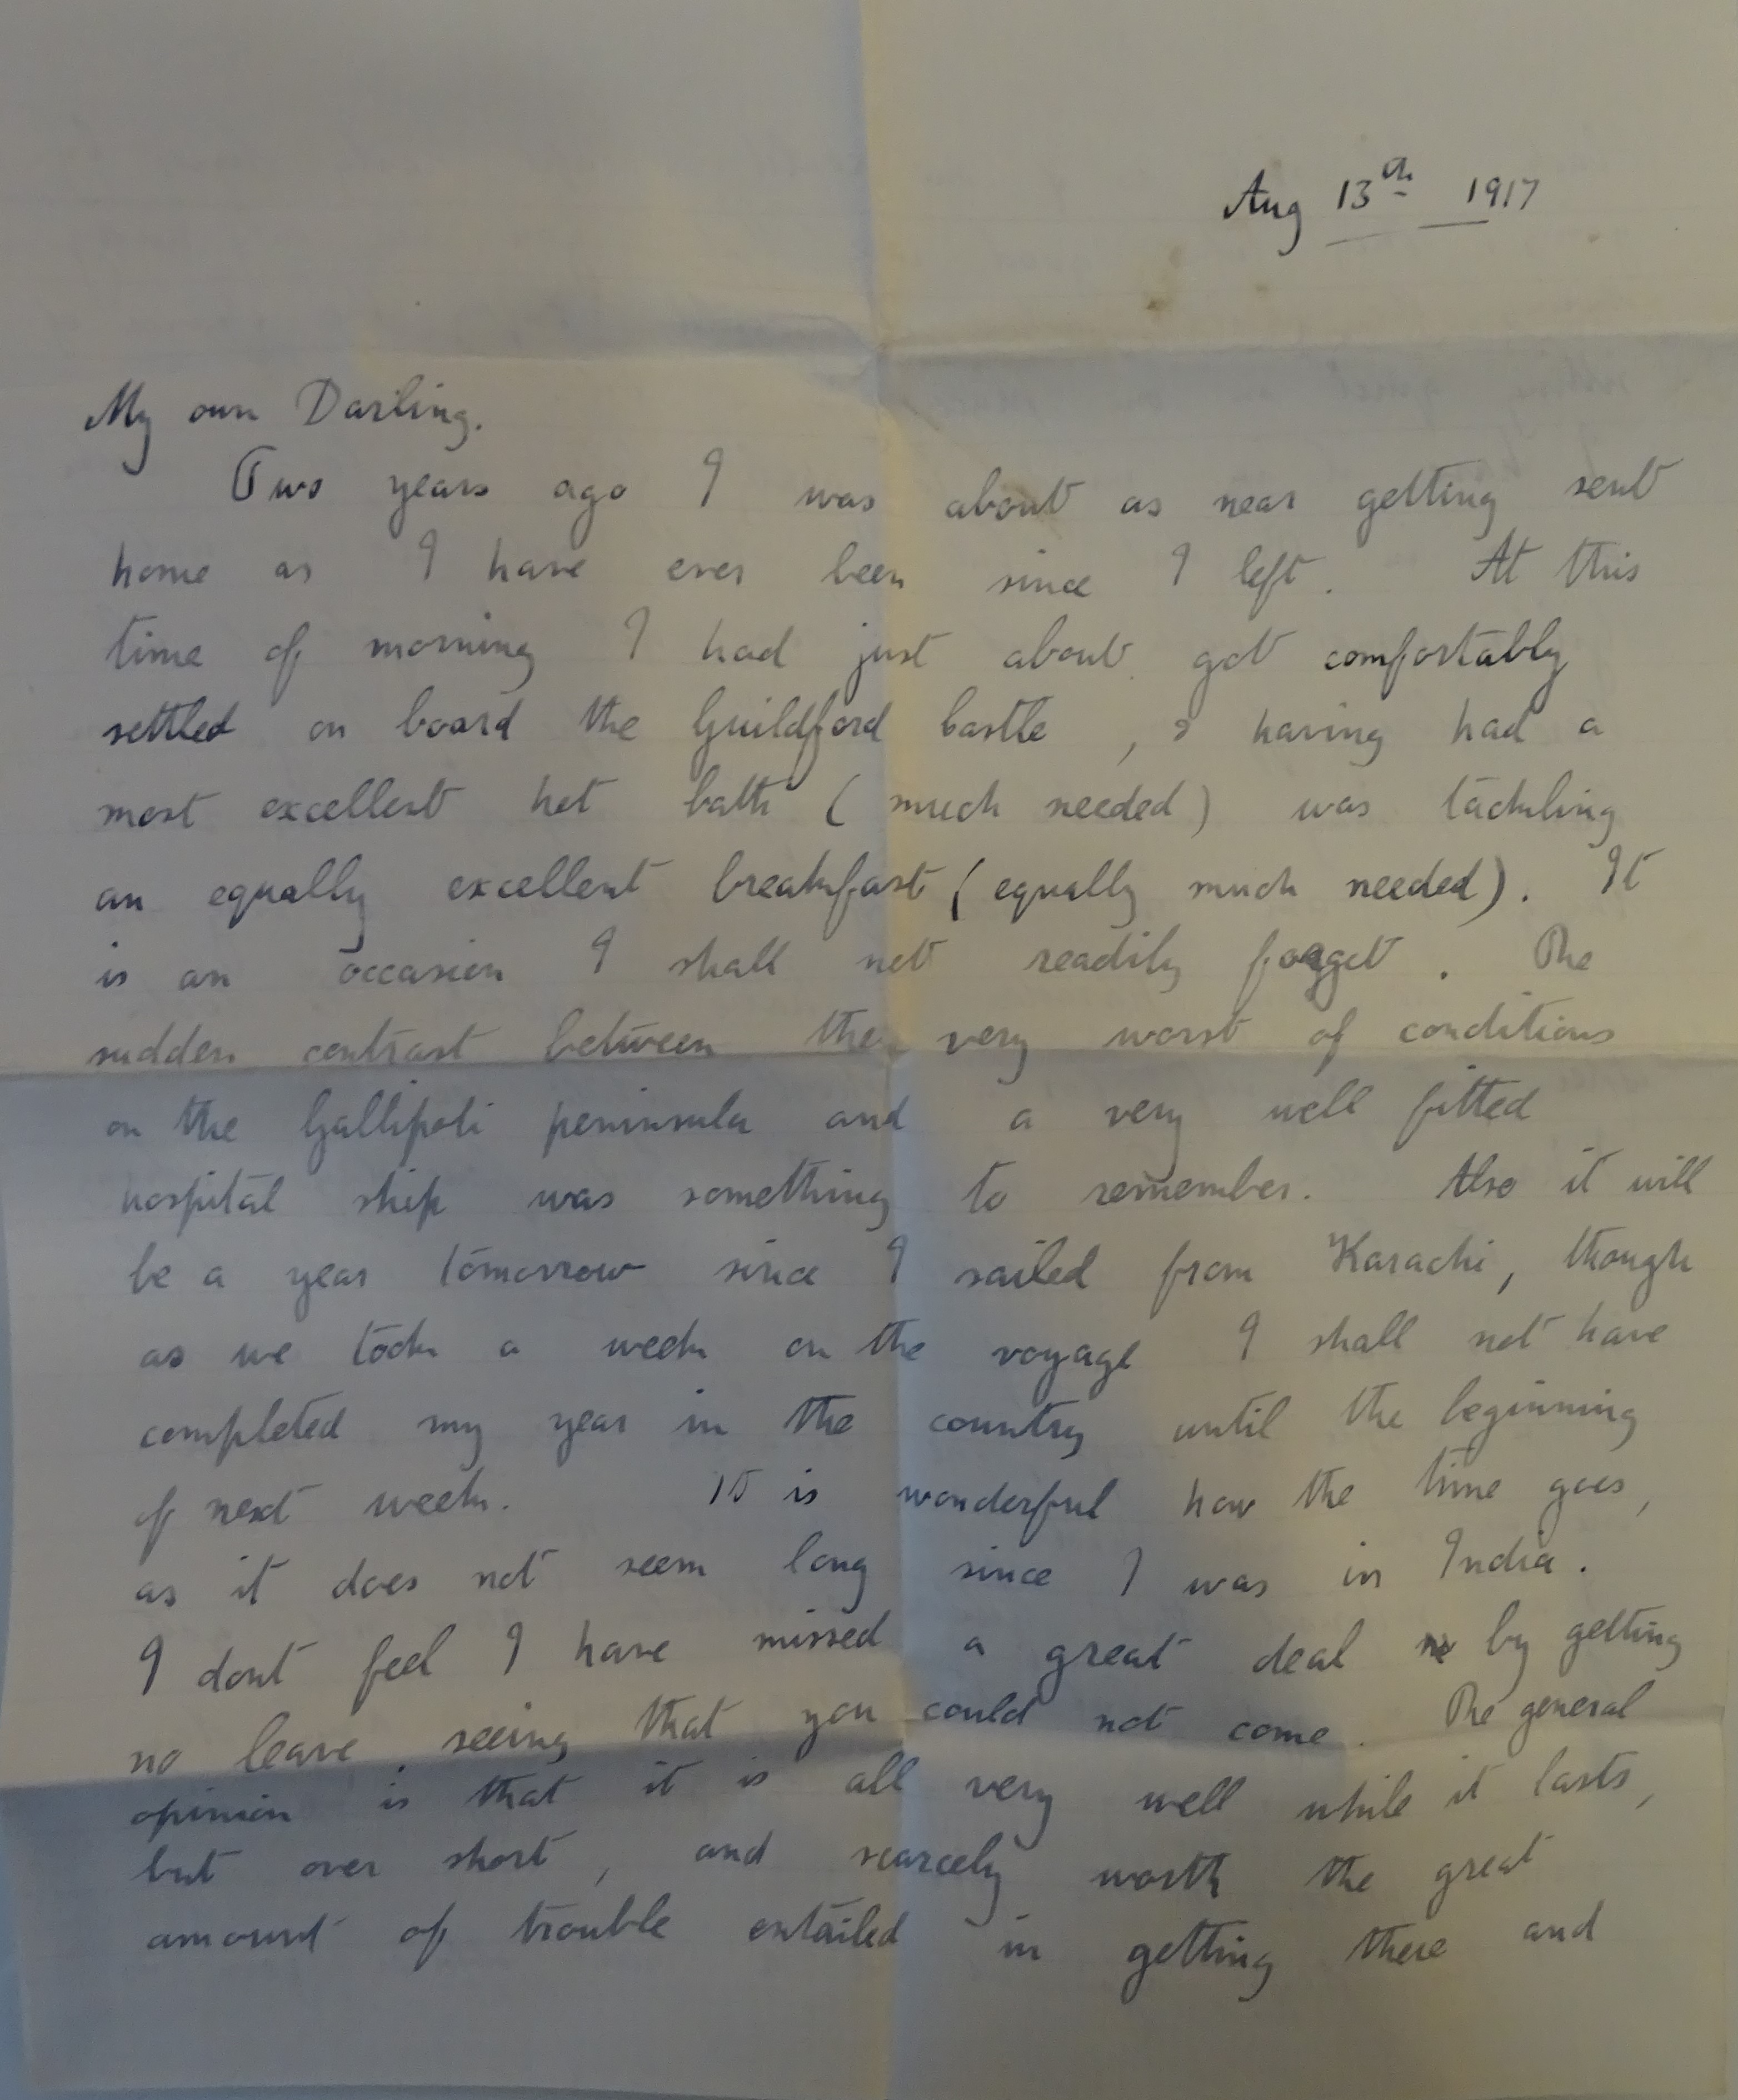 Aug 13th 1917
My own Darling.
Two years ago I was about as near getting sent
home as I have ever been since I left. At this
time of morning I had just about got comfortably
settled on board the Guildford Castle, & having had a
most excellent hot bath (much needed) was tackling
an equally excellent breakfast (equally much needed). It
is an occasion I shall not readily forget. The
sudden contrast between the very worst of conditions
on the Gallipoli peninsula and a very well fitted
hospital ship was something to remember. Also it will
be a year tomorrow since I sailed from Karachi, though
as we took a week on the voyage I shall not have
completed my year in the country until the beginning
of next week. It is wonderful how the time goes,
as it does not seem long since I was in India.
I dont feel I have missed a great deal by getting
no leave, seeing that you could not come. The general
opinion is that it is all very well while it lasts,
but over short, and scarcely worth the great
amount of trouble entailed in getting there and